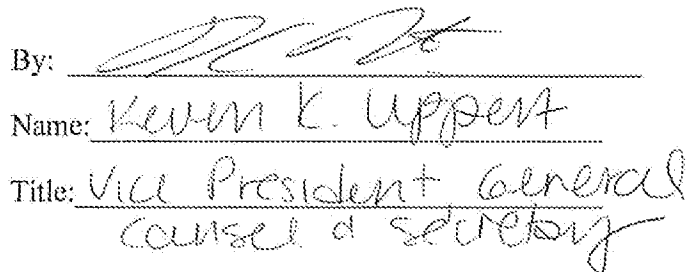 By:
Name: Keven K. Lippert
Title: Vice President General
counsel & secretary